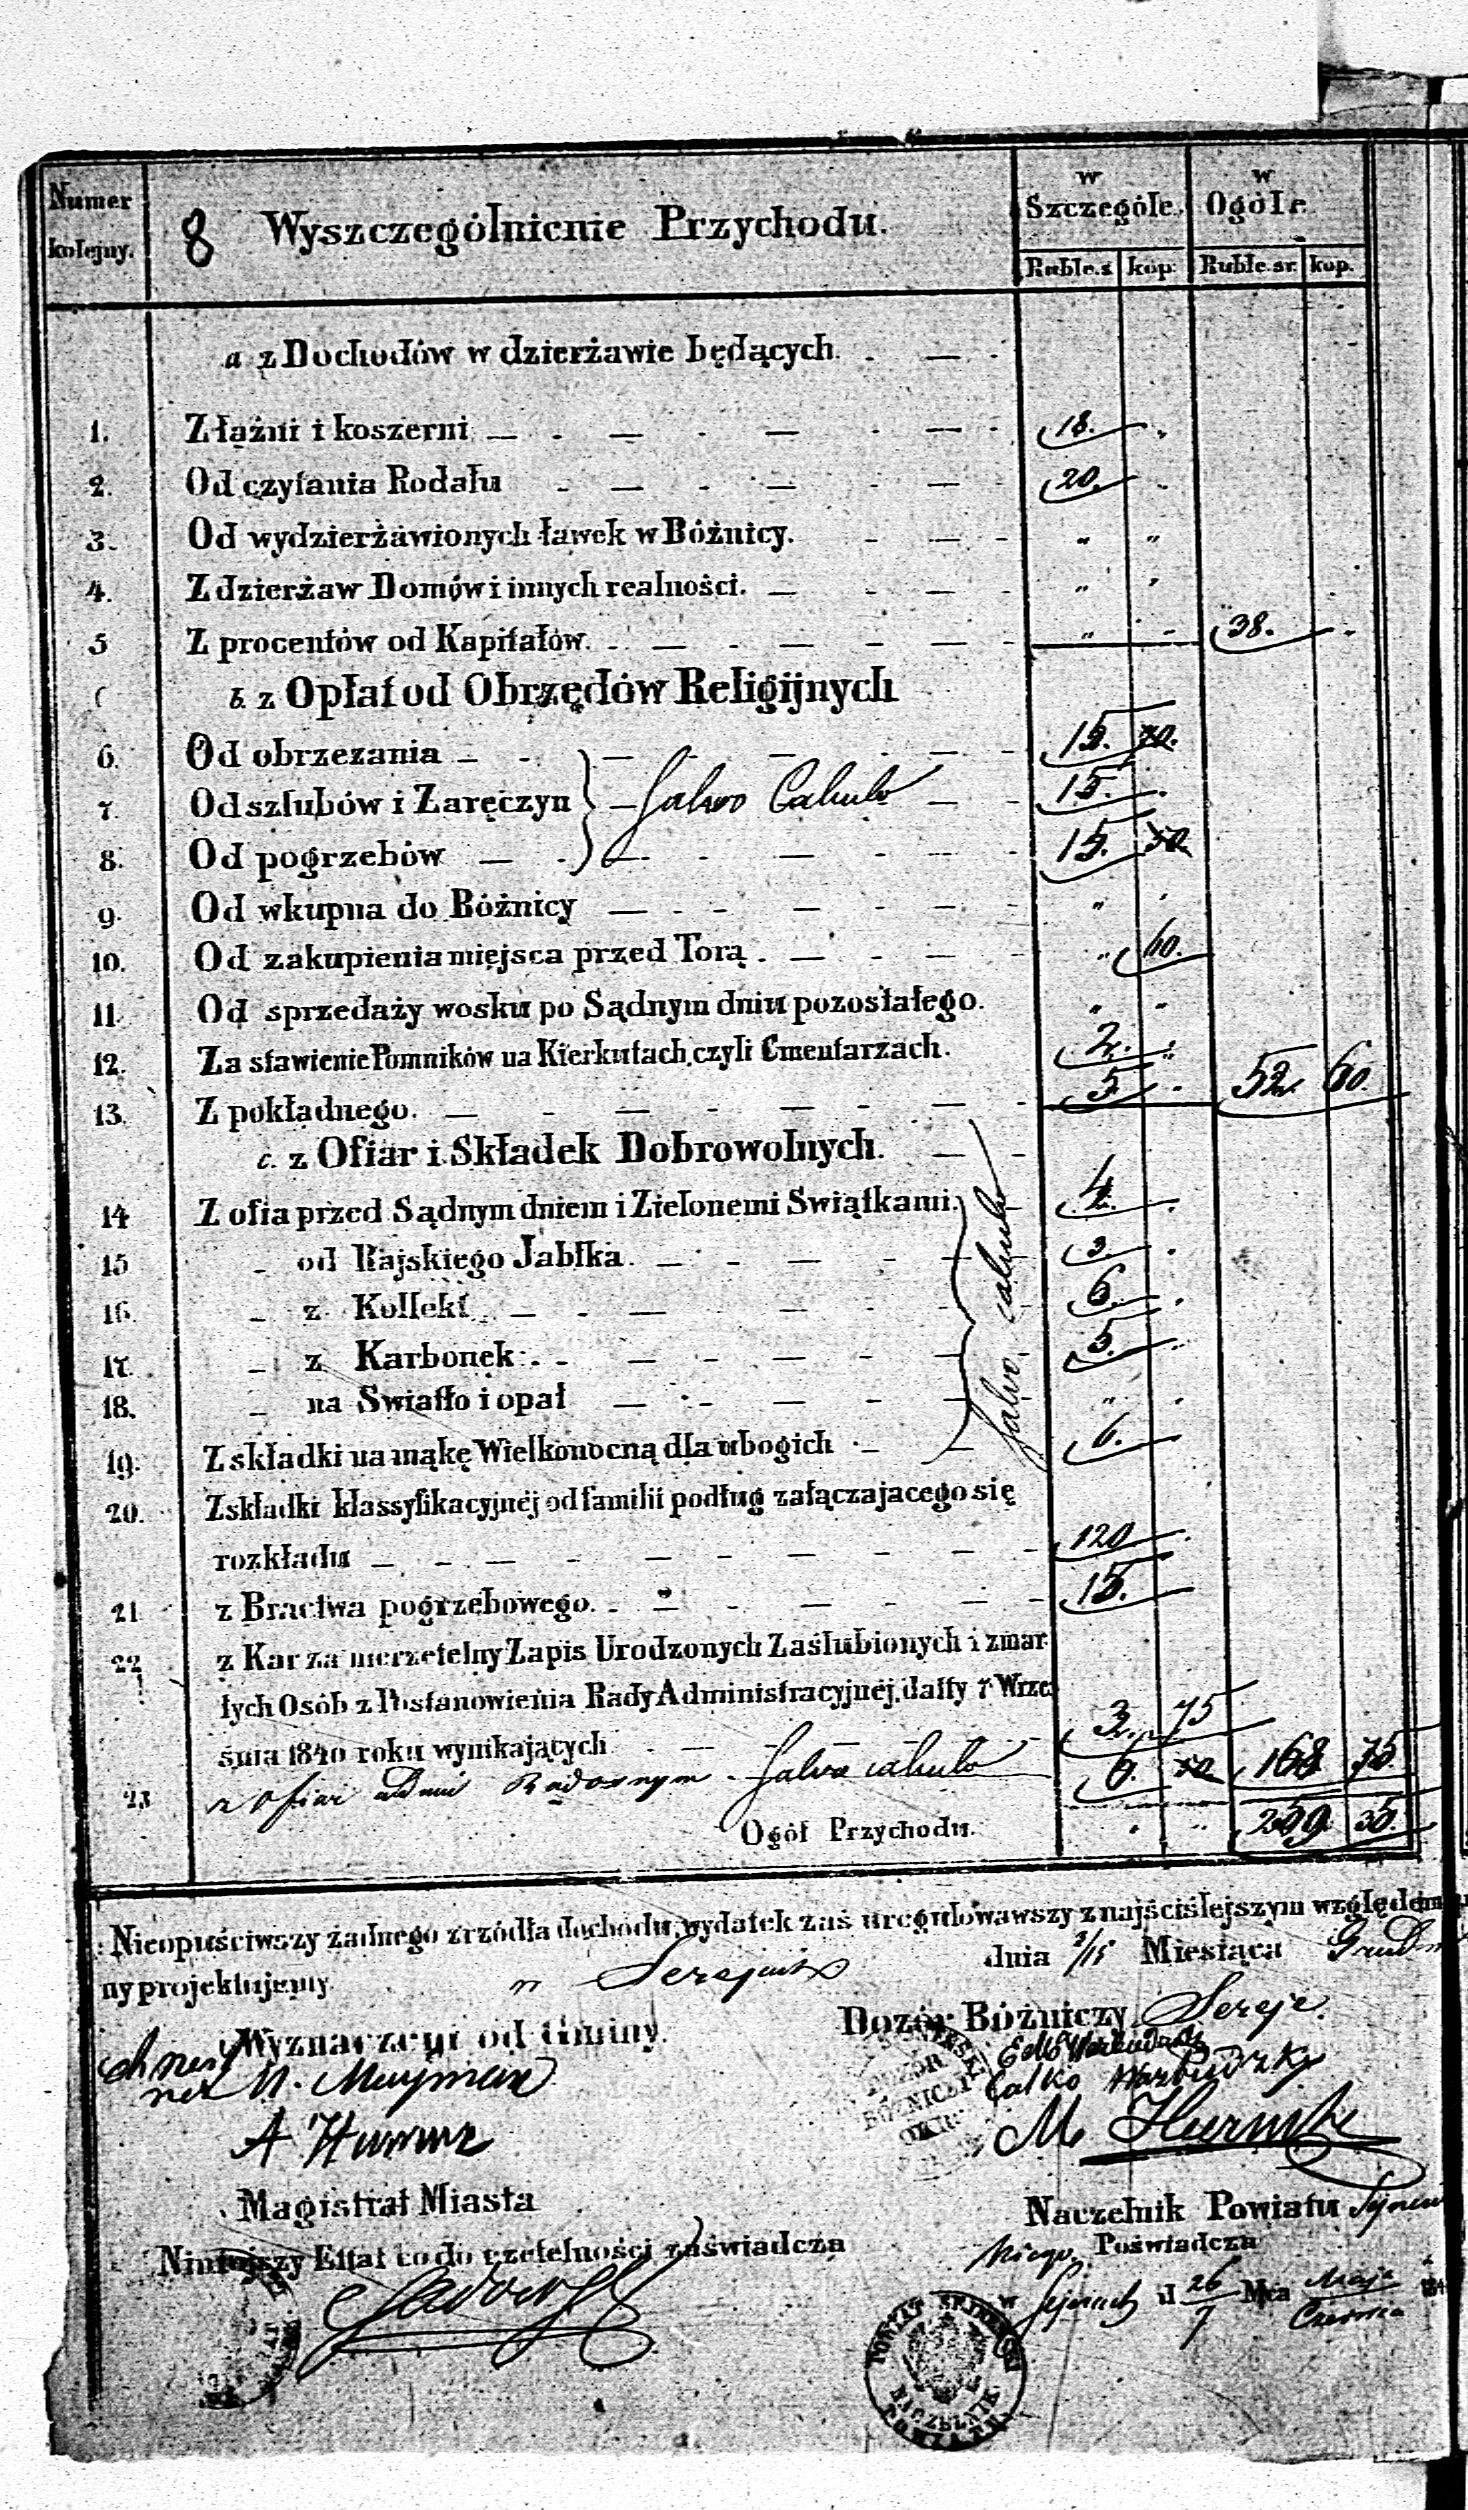 Numer kolejny.
8 Wyszczególnienie Przychodu.
w Szczególe.
w Ogóle
Ruble.s kop: Ruble.sr. kop.
a z Dochodów w dzierżawie będących.
1. Z łaźni i koszerni 18.
2. Od czytania Rodału 20.
3. Od wydzierżawionych ławek w Bóżnicy. „ „
4. Z dzierżaw Domów i innych realności. „ „
5 Z procentów od Kapitałów. „ 38.
b. z Opłat od Obrzędów Religijnych
6. Od obrzezania 15.
7. Od szlubów i Zaręczyn Salvo Calculo 15.
8. Od pogrzebów 15.
9. Od wkupna do Bóżnicy „
10. Od zakupienia miejsca przed Torą. „ 60.
11. Od sprzedaży wosku po Sądnym dniu pozostałego. „
12. Za stawienie Pomników na Kierkutach czyli Cmentarzach. 2.
13. Z pokładnego. 5 52 60
c. z Ofiar i Składek Dobrowolnych.
14 Z ofia przed Sądnym dniem i Zielonemi Swiątkami. 4.
15 „ od Rajskiego Jabłka.
16. „ z Kollekt 6.
17. „ z Karbonek 5.
salvo calculo
18. „ na Swiatło i opał „
19. Z składki na mąkę Wielkonocną dla ubogich 6.
20. Z składki klassyfikacyjnéj od familii podług załączajacego się
rozkładu 120
21 z Bractwa pogrzebowego. 15.
22 z Kar za nierzetelny Zapis Urodzonych Zaślubionych i zmar
łych Osób z Postanowienia Rady Administracyjnéj, datty 7 Wrze
śnia 1840 roku wynikających 3. 75
23 z ofiar w Dnie Radosnym Salvo calculo 6. 168 75
Ogół Przychodu. 259 35
Nieopuściwszy żadnego zrzódła dochodu, wydatek zaś uregulowawszy z najściślejszym względem
ny projektujemy.
w Serejach dnia 3/15 Miesiąca Grudn
Wyznaczeni od Gminy.
Dozór Bóżniczy Sereje
M. Hurwicz
Magistrat Miasta
Niniejszy Ettat co do rzetelności zaświadcza
Naczelnik Powiatu Sejneń
skiego Poświadcza
w Sejnach d 26/7 Mca Maja Czerwca 184
POWIAT SEJNEŃSKI
NACZELNIK
POWIATU
DOZÓR
BÓŻNICZY
OKR